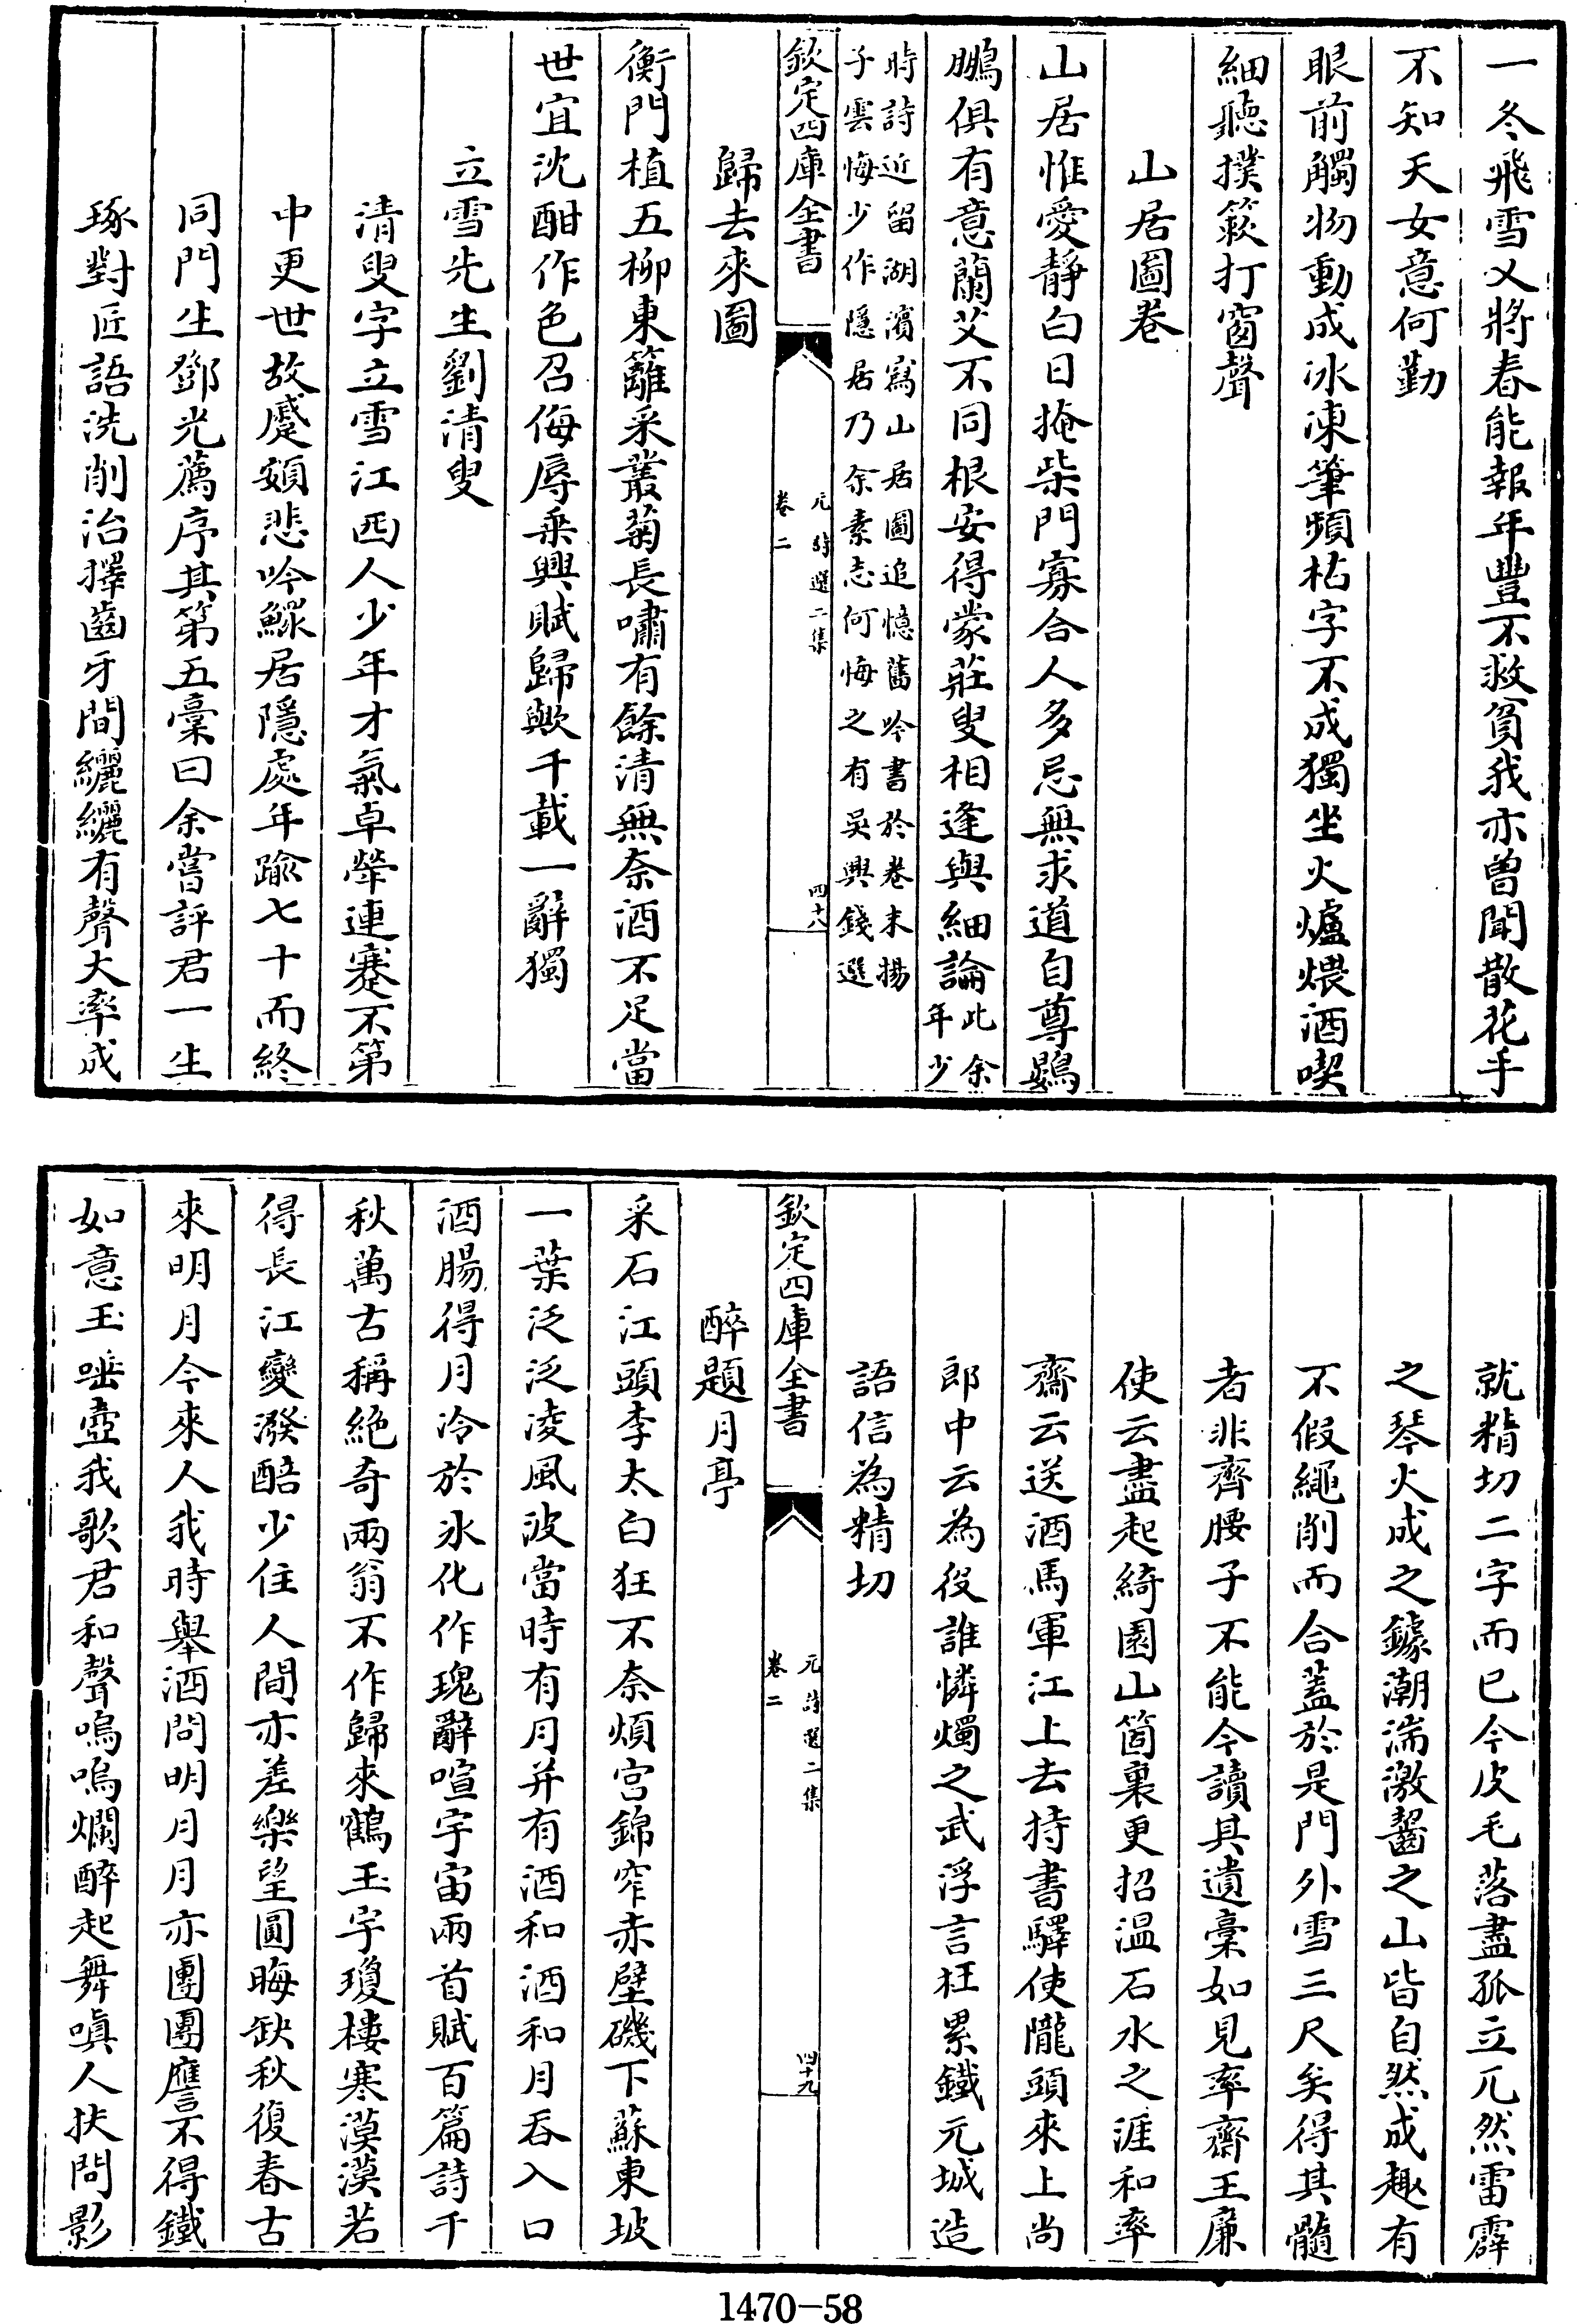 一冬飛雪乂將春能報年豐不救貧我亦曽聞散花手
不知天女意何勤
眼前觸物動成冰凍筆頻枯字不成獨坐火爐煨酒喫
細聽撲簌打窗聲
山居圖卷
山居惟愛靜白日掩柴門寡合人多忌無求道自尊鷃
鵬俱有意蘭艾不同根安得蒙莊叟相逢與細論此余年少
時詩近留湖濱寫山居圖追憶舊吟書於卷末揚
子雲悔少作隱居乃余素志何悔之有吳興錢選
欽定四庫全書
元詩選二集
卷二
四十八
歸去來圖
衡門植五柳東籬采叢菊長嘯有餘清無奈酒不足當
世宜沈酣作色召侮辱乘興賦歸歟千載一辭獨
立雪先生劉清叟
清叟字立雪江西人少年才氣卓犖連蹇不第
中更世故蹙頞悲吟鰥居隱處年踰七十而終
同門生鄧光薦序其第五稾曰余嘗評君一生
琢對匠語洗削治擇齒牙間纚纚有聲大率成
就精切二字而已今皮毛落盡孤立兀然雷霹
之琴火成之鐻潮湍激齧之山皆自然成趣有
不假繩削而合蓋於是門外雪三尺矣得其髓
者非齊腰子不能今讀其遺稾如見率齋王廉
使云盡起綺園山箇裏更招温石水之涯和率
齋云送酒馬軍江上去持書驛使隴頭來上尚
郎中云為役誰憐燭之武浮言枉累鐵元城造
語信為精切
欽定四庫全書
元詩選二集
卷二
四十九
醉題月亭
采石江頭李太白狂不奈煩宫錦窄赤壁磯下蘇東坡
一葉泛泛凌風波當時有月并有酒和酒和月吞入口
酒腸得月冷於氷化作瑰辭喧宇宙兩首賦百篇詩千
秋萬古稱絶奇兩翁不作歸來鶴玉宇瓊樓寒漠漠若
得長江變潑醅少住人間亦差樂望圓晦缺秋復春古
來明月今來人我時舉酒問明月月亦團團譍不得鐵
如意玉唾壺我歌君和聲嗚嗚爛醉起舞嗔人扶問影
1470—58